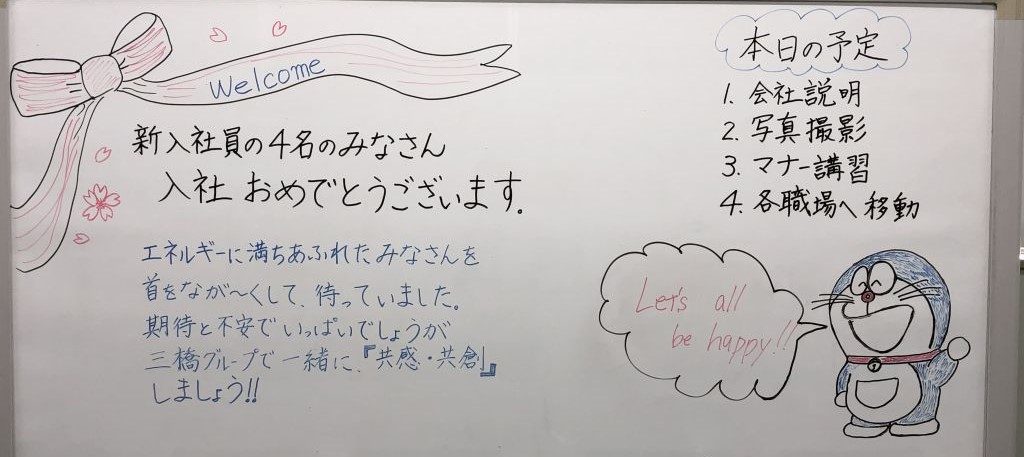 Welcome
新入社員の4名のみなさん
入社 おめでとうございます。
エネルギーに満ちあふれたみなさんを
首をなが〜くして、待っていました。
期待と不安でいっぱいでしょうが
三橋グループで一緒に、『共感・共創』
しましょう!!
本日の予定
1. 会社説明
2. 写真撮影
3. マナー講習
4. 各職場へ移動
Let's all
be happy!!